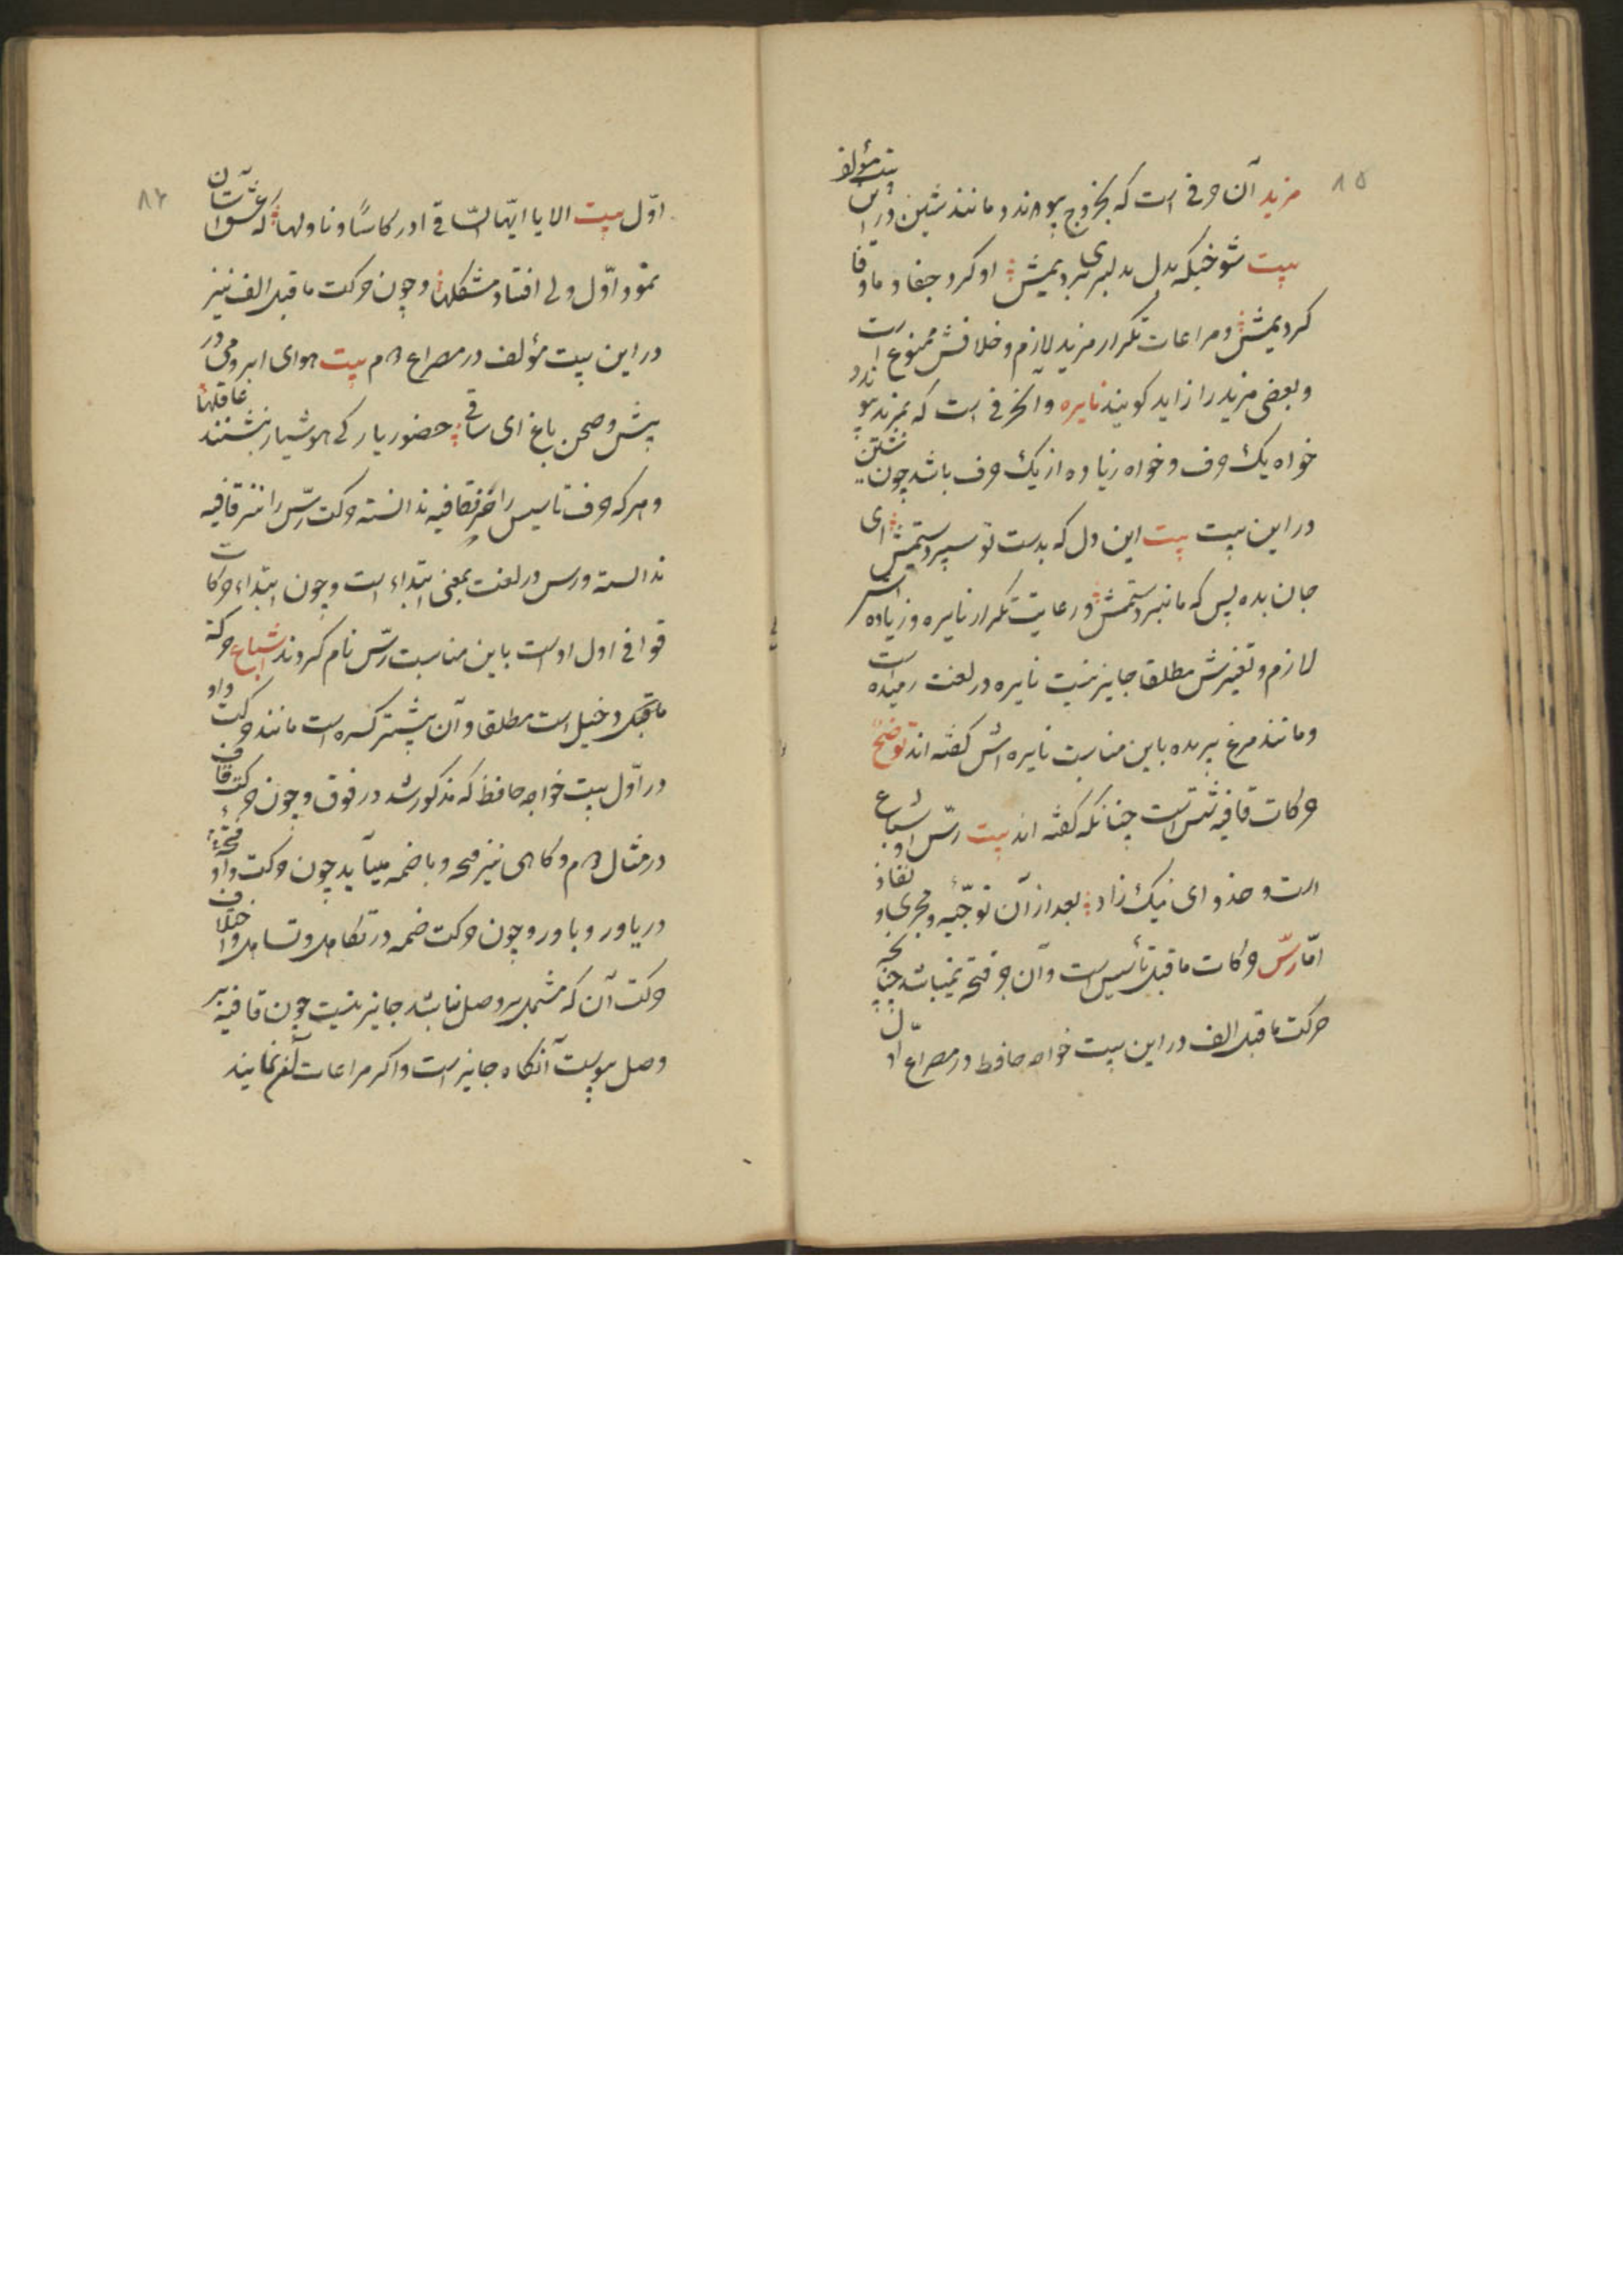 ۸۵
مزید آن حرفی است که بخروج پیوندد مانند شین در این بیت مؤلف
بیت شوخیکه بدل بدلبری بردیمش اوکرد جفا و ما وفا
کردیمش و مراعات تکرار مزید لازم و خلافش ممنوع است
و بعضی مزید را زاید کویند نایره و انحرفی است که بمزید پیوندد
خواه یک حرف و خواه زیاده از یک حرف باشد چون
در این بیت بیت این دل که بدست تو سپردستمش ای
جان بده پس که ما نبردستمش و رعایت تکرار نایره و زیاده
لازم و تغیرش مطلقا جایز نیست نایره در لغت رمیده است
و مانند مرغ پریده باین مناسبت نایره اش کفته اند توضیح
حرکات قافیه شش است چنانکه کفته اند بیت رسّ اشباع و
است و حذو ای نیک زاد بعد از آن توجیه و مجری و نفاذ
امّا رسّ حرکات ماقبل تأسیس است و آن جز فتحه نمیباشد چنانچه
حرکت ماقبل الف در این بیت خواجه حافظ در مصراع اوّل
۸۶
اوّل بیت الا یا ایّها السّاقی ادر کاسًا و ناولها که عشق آسان
نمود اوّل ولی افتاد مشکلها و چون حرکت ماقبل الف نیز
در این بیت مؤلف در مصراع دوم بیت هوای ابر و می در
پیش و صحن باغ ای ساقی حضور یار کی هوشیار بنشنند عاقلها
و هر که حرف تاسیس را جزء قافیه ندانسته حرکت رسّ را نیز قافیه
ندانسته و رس در لغت بمعنی ابتداء است و چون ابتداء حرکات
قوافی اول اوست باین مناسبت رسّ نام کردند اشباع حرکة
ماقبل دخیل است مطلقا و آن بیشتر کسره است مانند حرکت واو
در اوّل بیت خواجه حافظ که مذکور شد در فوق و چون حرکت قاف
در مثال دوم و کاهی نیز فتحه و یا ضمه میآید چون حرکت فتحهٔ واو
در یاور و باور و چون حرکت ضمه در تکاهل و تساهل و اختلاف
حرکت آن که مشتمل بر وصل نباشد جایز نیست چون قافیه بر
وصل پیوست آنکاه جایز است و اکر مراعات آنهم نمایند